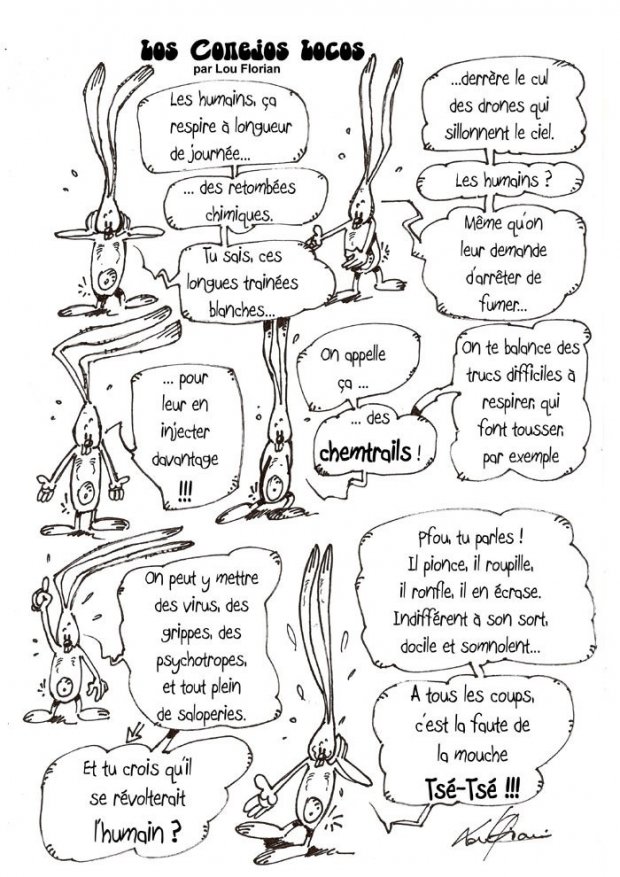 Los Conejos Locos
par Lou Florian
Les humains, ça
respire à longueur
de journée...
... des retombées
chimiques.
Tu sais, ces
longues trainées
blanches...
...derrère le cul
des drones qui
sillonnent le ciel.
Les humains ?
Même qu'on
leur demande
d'arrêter de
fumer...
... pour
leur en
injecter
davantage
!!!
On appelle
ça ...
... des
chemtrails !
On te balance des
trucs difficiles à
respirer, qui
font tousser,
par exemple
On peut y mettre
des virus, des
grippes, des
psychotropes,
et tout plein
de saloperies.
Et tu crois qu'il
se révolterait
l'humain ?
Pfou, tu parles !
Il pionce, il roupille,
il ronfle, il en écrase.
Indifférent à son sort,
docile et somnolent...
A tous les coups,
c'est la faute de
la mouche
Tsé-Tsé !!!